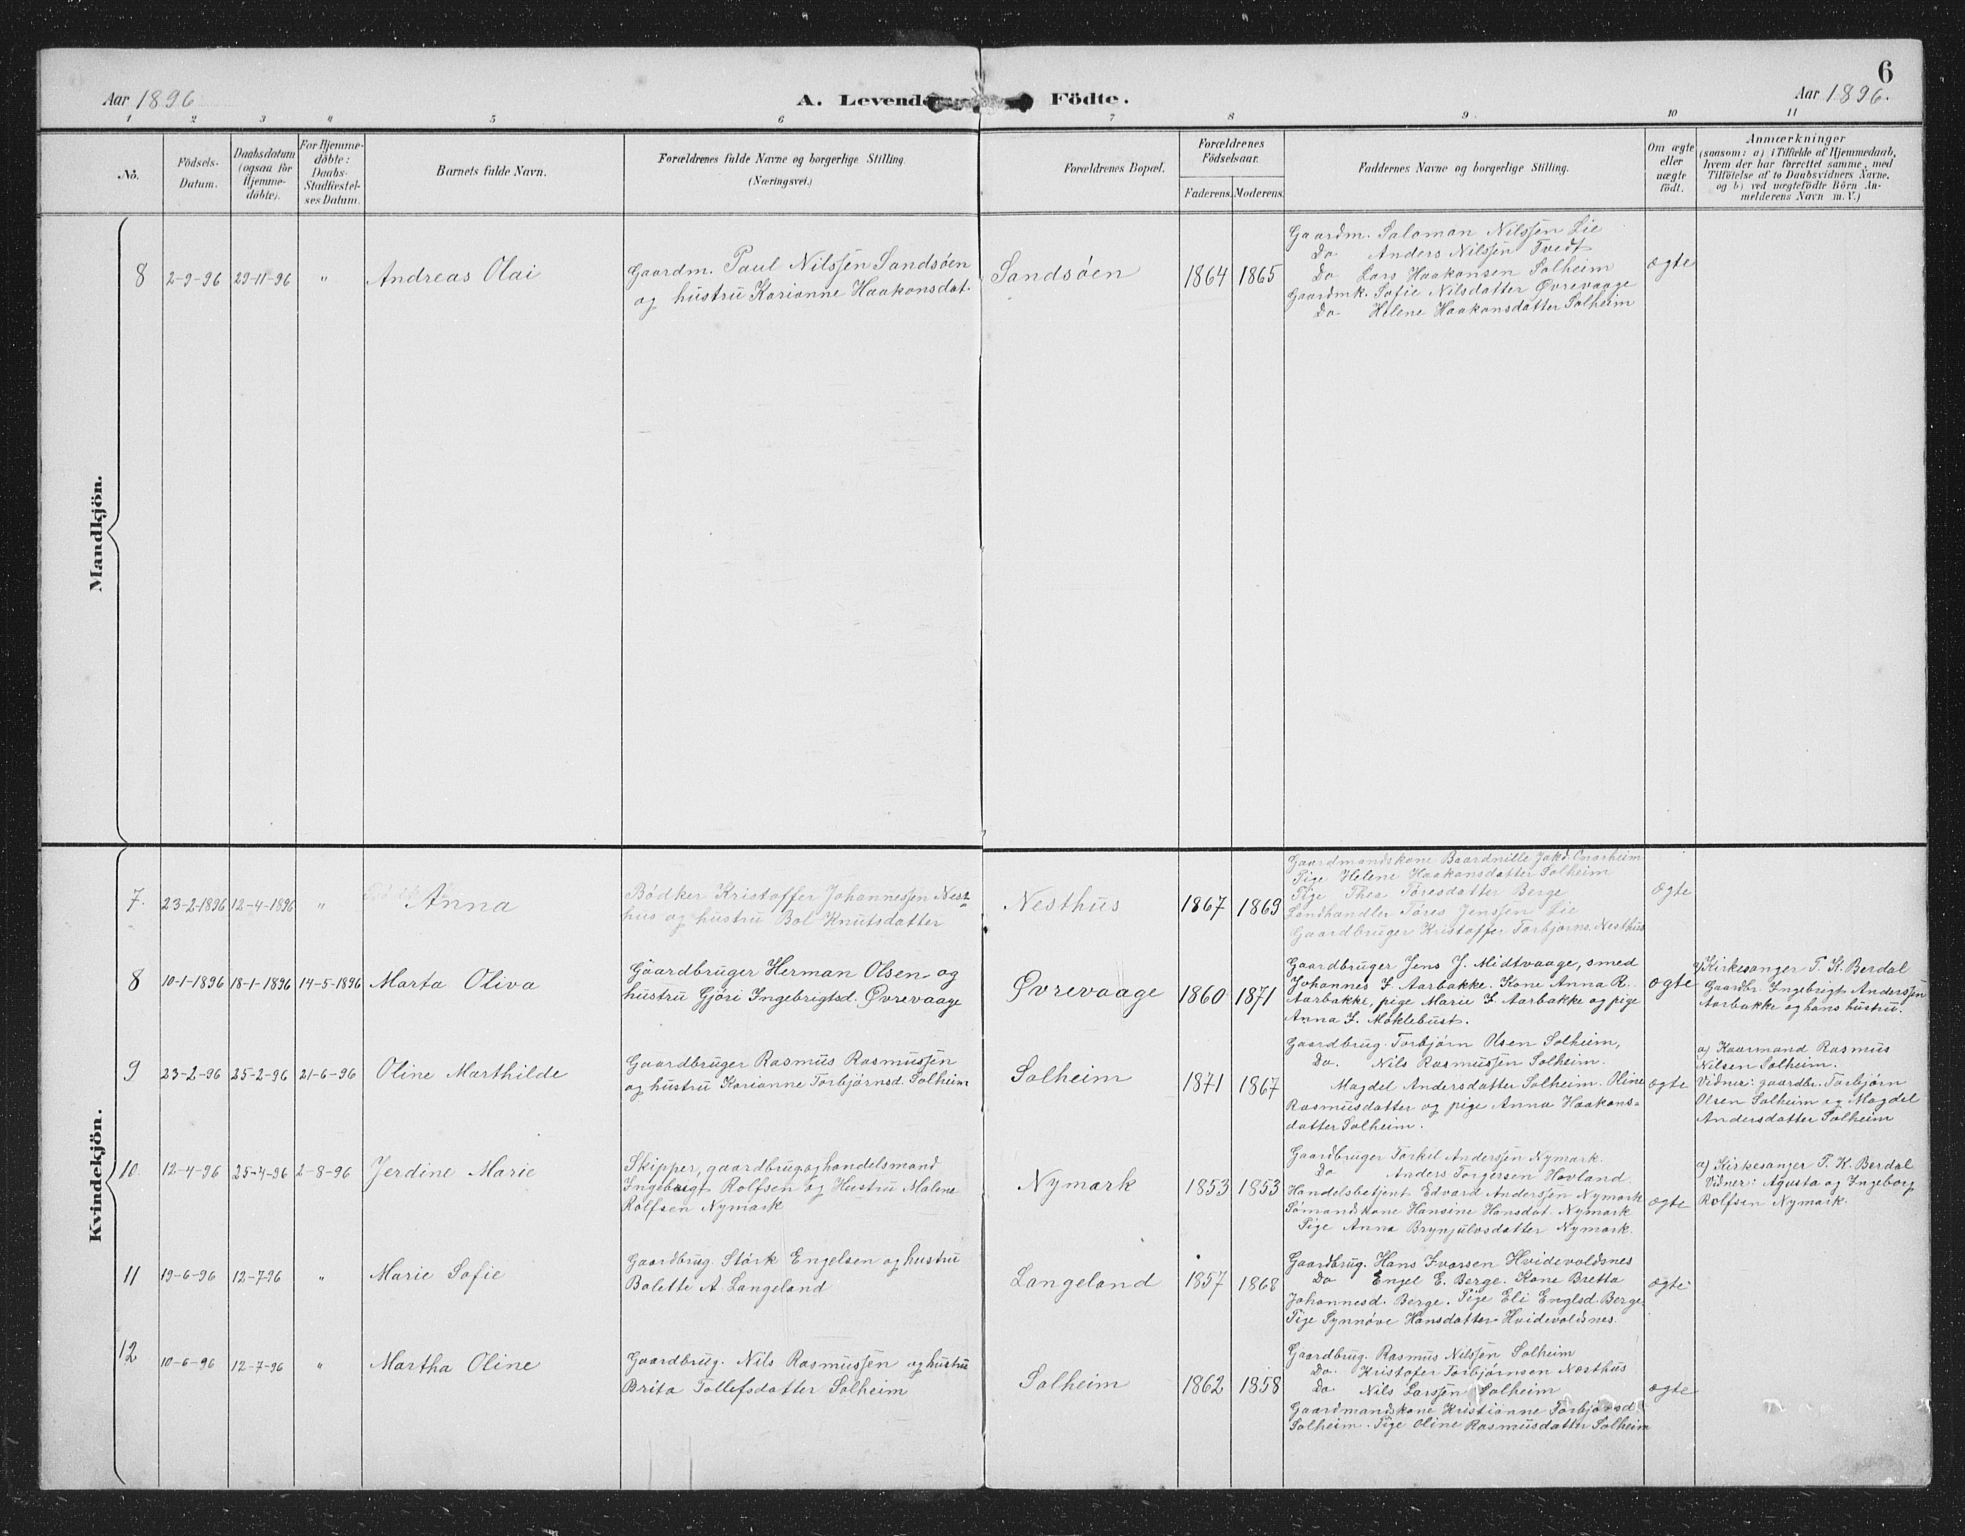 6
Aar 1896
A. Levende Födte.
Aar 1896.
1 2 3 4 5 6 7 8 9 10 11
No.
Födsels-
Datum.
Daabsdatum
(ogsaa for
Hjemme-
döbte).
For Hjemme-
döbte:
Daabs-
Stadfæstel-
ses Datum.
Barnets fulde Navn.
Forældrenes fulde Navne og borgerlige Stilling.
(Næringsvei.)
Forældrenes Bopæl.
Forældrenes
Födselsaar.
Faderens. Moderens.
Faddernes Navne og borgerlige Stilling.
Om ægte
eller
uægte
födt.
Anmærkninger
(saasom: a) i Tilfælde af Hjemmedaab,
hvem der har forrettet samme, med
Tilföielse af to Daabsvidners Navne,
og b) ved uægtefödte Börn An-
melderens Navn m. V.)
Mandkjön.
8 2-9-96 29-11-96 " Andreas Olai
Gaardm. Paul Nilssen Sandsöen
og hustru Karianne Haakonsdat.
Sandsöen 1864 1865
Gaardm. Salaman Nilssen Lie
Do Anders Nilssen Tvedt
Do Lars Haakonsen Solheim
Gaardmk. Sofie Nilsdatter Øvrevaage
Do Helene Haakonsdatter Solheim
ægte
Kvindekjön.
7. 23-2-1896 12-4-1896 " Anna
Bödker Kristoffer Johannessen Nest-
hus og hustru Bol Knutsdatter
Nesthus 1867 1869
Gaardmandskone Baardnille Jakd. Onarheim
Pige Helene Haakonsdatter Solheim
Pige Thea Töresdatter Berge
Landhandler Töres Jenssen Lie
Gaardbruger Kristoffer Torbjørns. Nesthus
ægte
8 10-1-1896 18-1-1896 14-5-1896 Marta Oliva
Gaardbruger Herman Olsen og
hustru Gjöri Ingebrigtsd. Øvrevaage
Øvrevaage 1860 1871
Gaardbruger Jens J. Midtvaage, smed
Johannes J Aarbakke. Kone Anna R.
Aarbakke, pige Marie J. Aarbakke og pige
Anna J. Möklebust.
ægte
a) Kirkesanger T. K. Berdal
Gaardbr. Ingebrigt Anderssen
Aarbakke og hans hustru.
9 23-2-96 25-2-96 21-6-96 Oline Marthilde
Gaardbruger Rasmus Rasmussen
og hustru Karianne Torbjörnsd. Solheim
Solheim 1871 1867
Gaardbrug. Torbjørn Olsen Solheim,
Do. Nils Rasmussen Solheim.
Magdel Andersdatter Solheim. Oline
Rasmusdatter og pige Anna Haakons-
datter Solheim.
ægte
a) Kaarmand Rasmus
Nilsen Solheim.
Vidner: gaardbr. Torbjørn
Olsen Solheim og Magdel
Andersdatter Solheim
10. 12-4-96 25-4-96 2-8-96 Jerdine Marie
Skipper, gaardbrug. og handelsmand
Ingebrigt Rolfsen og Hustru Malene
Rolfsen Nymark
Nymark 1853 1853
Gaardbruger Torkel Anderssen Nymark.
Do Anders Torgersen Hovland.
Handelsbetjent Edvard Anderssen Nymark
Sömandskone Hansine Hansdat. Nymark
Pige Anna Brynjulvsdatter Nymark.
ægte
a) Kirkesanger T. K. Berdal
Vidner: Agusta og Ingeborg
Rolfsen Nymark.
11 19-6-96 12-7-96 " Marie Sofie
Gaardbrug. Störk Engelsen og hustru
Bolette A. Langeland
Langeland 1857 1868
Gaardbrug. Hans Ivarsen Hvidevoldsnes
Do Engel E. Berge. Kone Bretta
Johannesd. Berge. Pige Eli Englsd. Berge.
Pige Synnöve Hansdatter Hvidevoldsnes.
ægte
12 10-6-96 12-7-96 " Martha Oline
Gaardbrug. Nils Rasmussen og hustru
Brita Tollefsdatter Solheim
Solheim 1862 1858
Gaardbrug. Rasmus Nilssen Solheim
Do. Kristofer Torbjørnsen Næsthus
Do Nils Larssen Solheim
Gaardmandskone Kristianne Torbjörnsd.
Solheim. Pige Oline Rasmusdatter Solheim
ægte